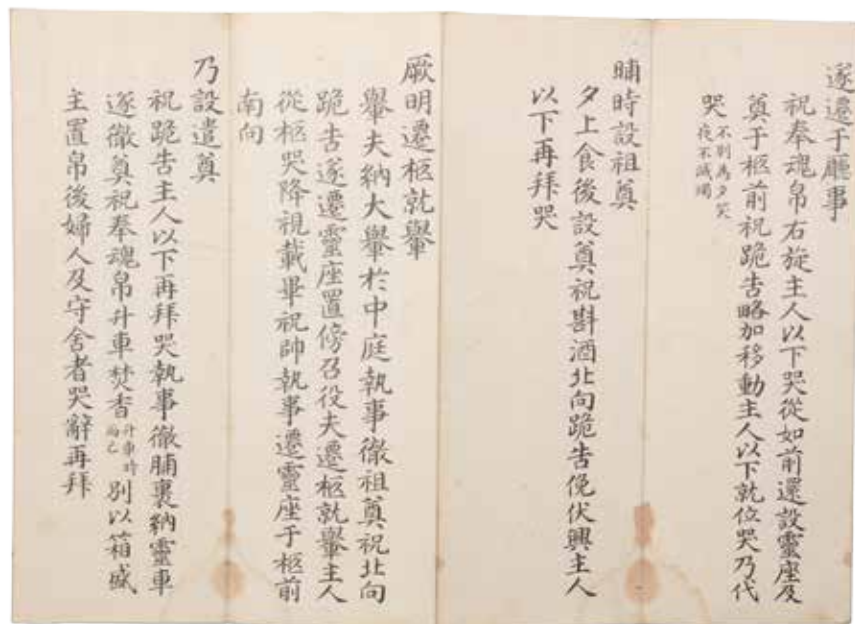 遂遷于廳事
祝奉魂帛右旋主人以下哭從如前還設靈座及
奠于柩前祝跪告略加移動主人以下就位哭乃代
哭
不別爲夕哭
夜不滅燭
晡時設祖奠
夕上食後設奠祝斟酒北向跪告俛伏興主人
以下再拜哭
厥明遷柩就轝
轝夫納大轝於中庭執事徹祖奠祝北向
跪告遂遷靈座置傍召役夫遷柩就轝主人
從柩哭降視載畢祝帥執事遷靈座于柩前
南向
乃設遣奠
祝跪告主人以下再拜哭執事徹脯裹納靈車
遂徹奠祝奉魂帛升車焚香
升車時
別以箱盛
主置帛後婦人及守舍者哭辭再拜